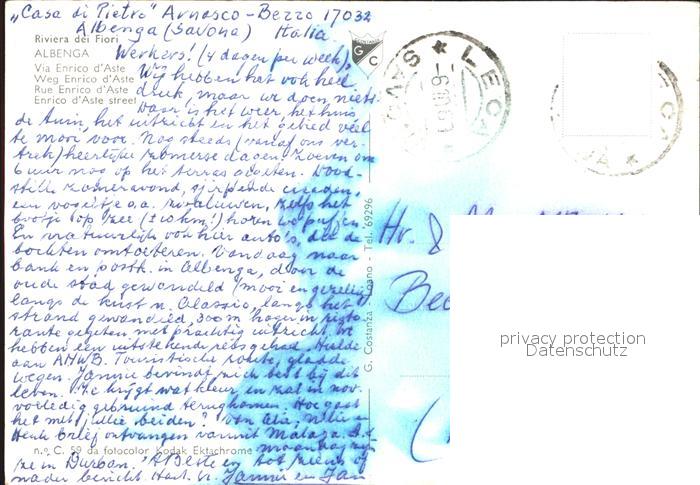 „Casa di Pietro" Arnasco - Bezzo 17032
Albenga (Savona) Italia.
Riviera dei Fiori
ALBENGA
Via Enrico d'Aste
Weg Enrico d'Aste
Rue Enrico d'Aste
Enrico d'Aste street
G C
Werkers! (4 dagen per week),
Wij hebben het ook heel
druk, maar we doen niets.
Daar is het weer, het huis
de tuin, het uitzicht en het gebied veel
te mooi voor. Nog steeds (vanaf ons ver-
trek) heerlijke zomerse dagen. Zoeven om
6 uur nog op het terras gegeten. Dood-
stille zomeravond, sjirpende cicaden,
een vogeltje o.a. zwaluwen, zelfs het
bootje op zee (± 10 km!) horen we puffen.
En natuurlijk ook hier auto's, die de
bochten omtoeteren. Vandaag naar
bank en postk. in Albenga, door de
oude stad gewandeld (mooi en gezellig)
langs de kust n. Alassio, langs het
strand gewandeld, 300 m hoger in
rante gegeten met prachtig uitzicht. We
hebben een uitstekende reis gehad. Hulde
aan ANWB. Touristische route, gladde
wegen. Jannie bevindt zich best bij dit
leven. Ze krijgt wat kleur en zal in nov.
volledig gebruind terugkomen. Hoe gaat
het met jullie beiden? Van
Henk brief ontvangen vanuit Malaga.
maandag zijn
ze in Durban. 't Beste en tot ziens of
nader bericht. Hart. gr. Jannie en Jan
n.º C. 59 da fotocolor Kodak Ektachrome
G. Costanza Tel. 69296
SAVONA * LECA
LECA
*
Hr. &
privacy protection
Datenschutz